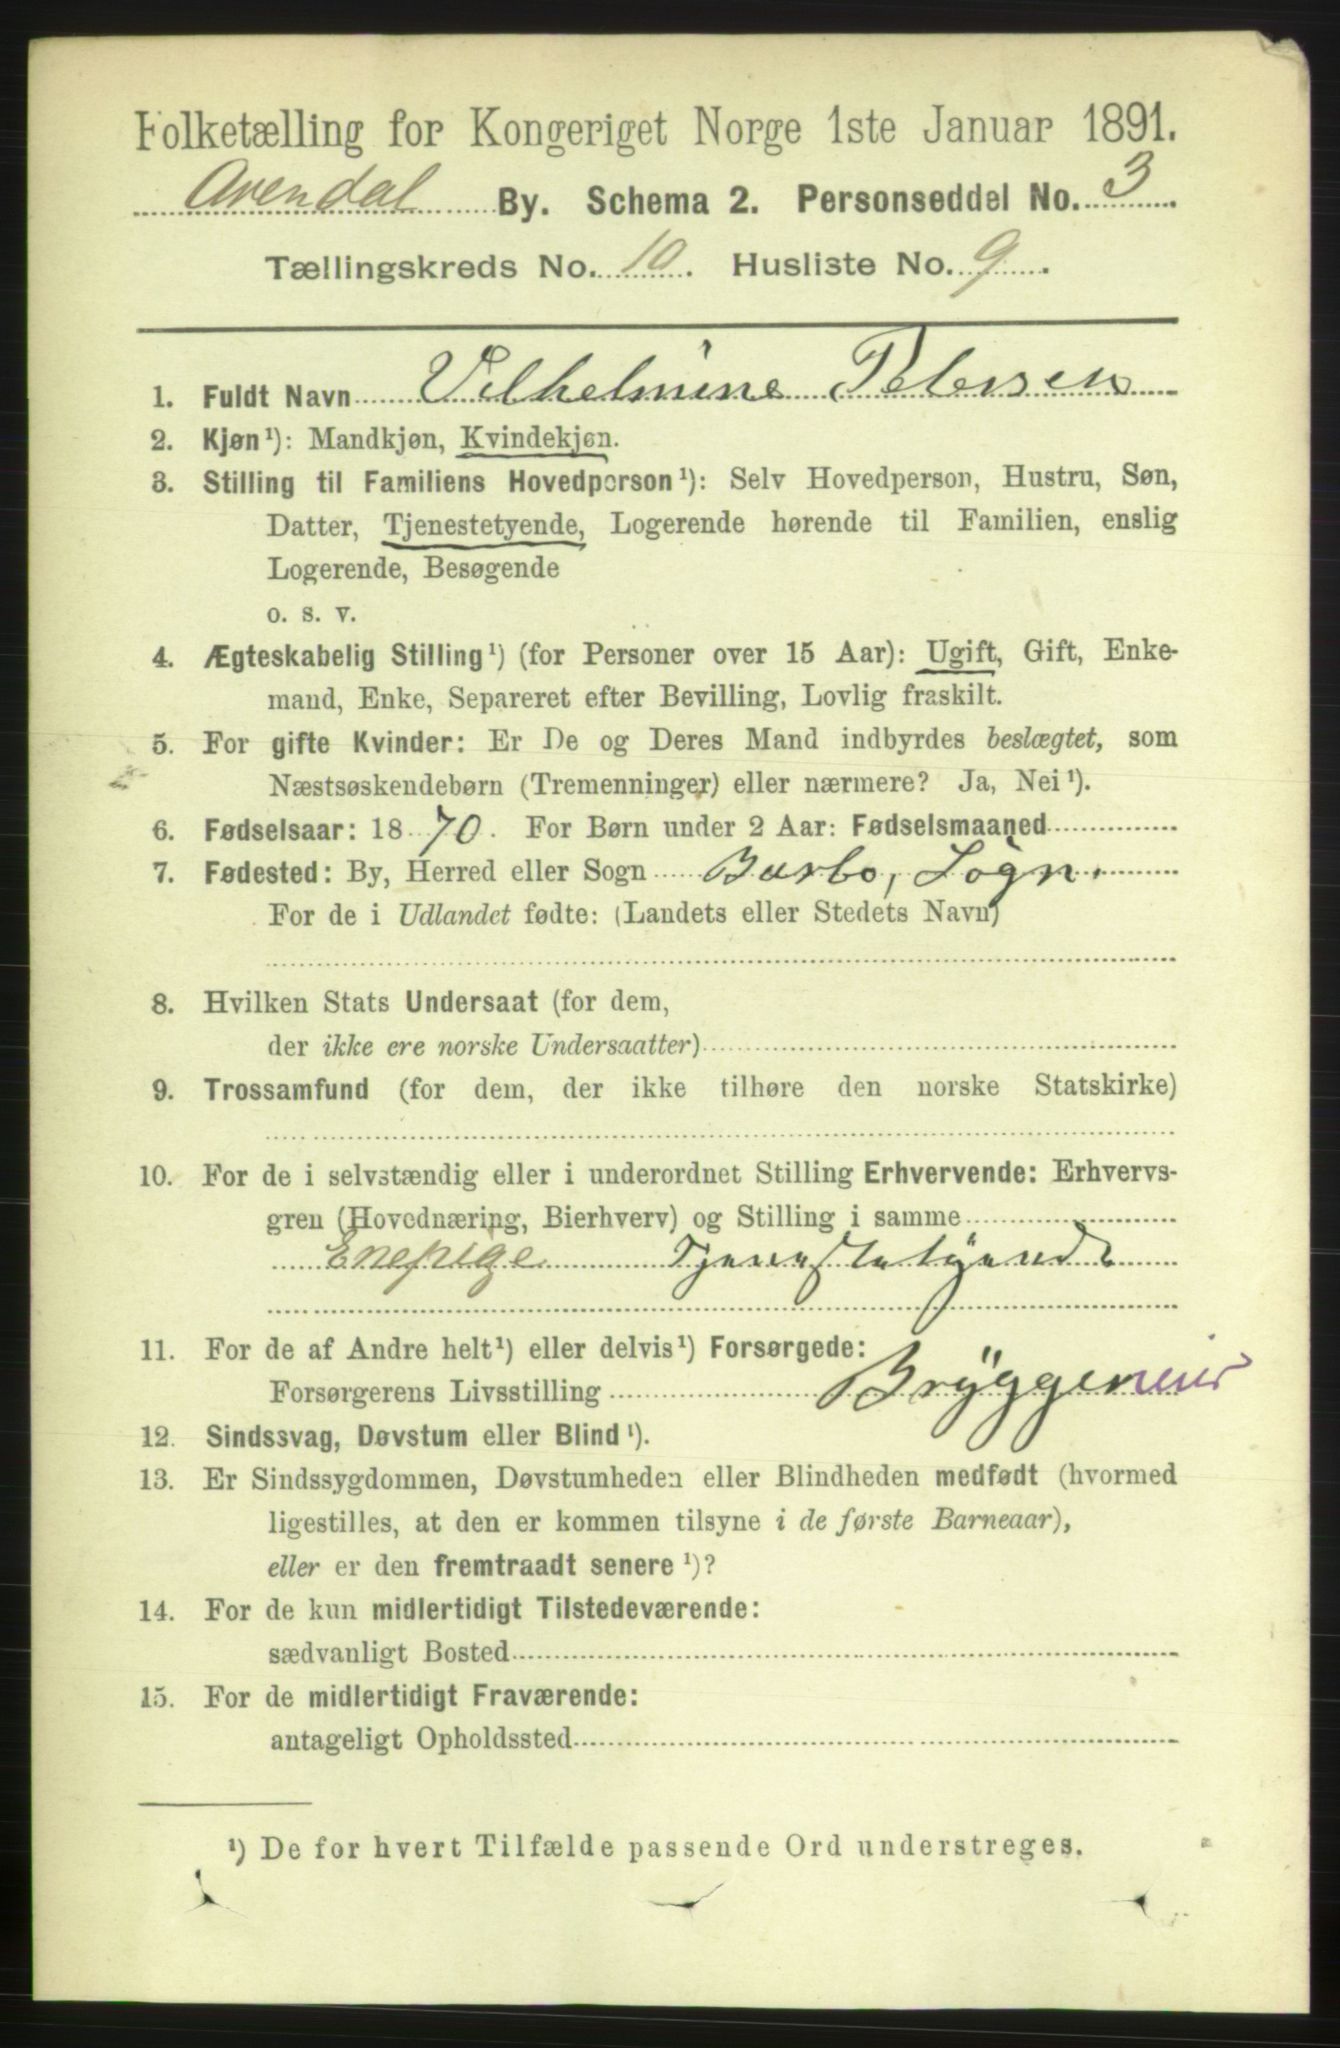 Folketælling for Kongeriget Norge 1ste Januar 1891.
Arendal By. Schema 2. Personseddel No. 3.
Tællingskreds No. 10. Husliste No. 9.
1. Fuldt Navn Vilhelmine Petersen
2. Kjøn¹): Mandkjøn, Kvindekjøn.
3. Stilling til Familiens Hovedperson¹): Selv Hovedperson, Hustru, Søn,
Datter, Tjenestetyende, Logerende hørende til Familien, enslig
Logerende, Besøgende
o. s. v.
4. Ægteskabelig Stilling¹) (for Personer over 15 Aar): Ugift, Gift, Enke-
mand, Enke, Separeret efter Bevilling, Lovlig fraskilt.
5. For gifte Kvinder: Er De og Deres Mand indbyrdes beslægtet, som
Næstsøskendebørn (Tremenninger) eller nærmere? Ja, Nei¹).
6. Fødselsaar: 1870. For Børn under 2 Aar: Fødselsmaaned
7. Fødested: By, Herred eller Sogn Barbo, Sogn.
For de i Udlandet fødte: (Landets eller Stedets Navn)
8. Hvilken Stats Undersaat (for dem,
der ikke ere norske Undersaatter)
9. Trossamfund (for dem, der ikke tilhøre den norske Statskirke)
10. For de i selvstændig eller i underordnet Stilling Erhvervende: Erhvervs-
gren (Hovednæring, Bierhverv) og Stilling i samme
Enepige Tjenestetyende
11. For de af Andre helt¹) eller delvis¹) Forsørgede:
Forsørgerens Livsstilling
12. Sindssvag, Døvstum eller Blind¹).
13. Er Sindssygdommen, Døvstumheden eller Blindheden medfødt (hvormed
ligestilles, at den er kommen tilsyne i de første Barneaar),
eller er den fremtraadt senere¹)?
14. For de kun midlertidigt Tilstedeværende:
sædvanligt Bosted
15. For de midlertidigt Fraværende:
antageligt Opholdssted
¹) De for hvert Tilfælde passende Ord understreges.